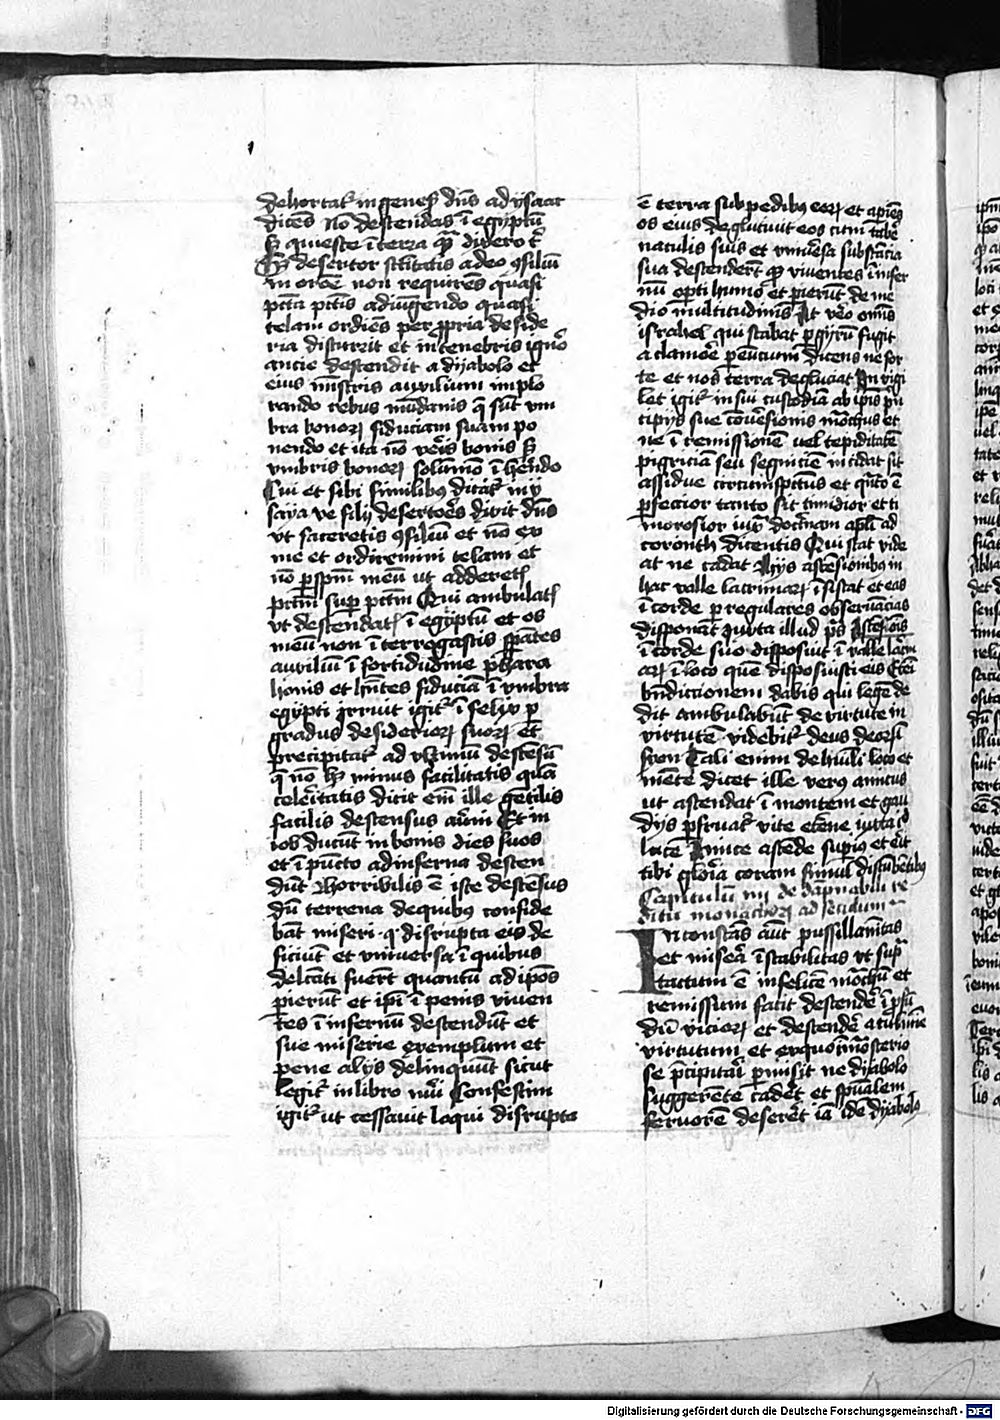 dehortat᷑ in genes̄ dn̄s ad ysaac
dicēs nō descendas ī egyptū
s᷑ quiesce ī terra qᵃ̄ dixero t᷑
desertor sc̄titatis a deo ꝯsiliū
in orōe non requirēs quasi
pctā pctīs adiūgendo quasi
telam ordiēs per ꝓpria deside
ria discurrit et in tenebris igno᷑
ancie descendit a dyabolo et
eius mīstris auxilium implo
rando rebus mūdanis q̄ sūt vm
bra bonoꝝ fiduciam suam po
nendo et ita nō ve᷑is bonis s᷑
vmbris bonoꝝ solūmō ī hēndo
Cui et sibi similibꝰ dicit᷑ in y
saya ve filij deserto᷑es dixit dn̄s
vt faceretis ꝯsiliū et nō ex
me et ordiremini telam et
nō ꝑ spm̄ meū ut adderetꝭ
pctm̄ suꝑ pctm̄ Qui ambulatꝭ
vt descendatꝭ ī egyptū et os
meū non īterrogastis spāntes
auxiliū ī fortidudine phara
honis et hn̄tes fiduciā ī vmbra
egypti irruit igit᷑ ī felix ꝑ
gradus desiderioꝝ suoꝝ et
precipitat᷑ ad vltimū descēsū
q̄ nō hꝫ minus facilitatis quā
cele᷑itatis dicit em̄ ille gētilis
facilis descensus au᷑ni Et in
iob ducūt in bonis dies suos
et ī pūcto ad inferna descen
dūt Horribilis ē iste descēsus
dū terrena de quibꝰ confide
bāt miseri q̄ disrupta eis de
ficiūt et vniuersa ī quibus
delc̄ati fuerūt quantū ad ipōs
ꝑierūt et ipī ī penis viuen
tes ī infernū descendūt et
sue miserie exemplum et
pene alijs delinquūt sicut
legit᷑ in libro nūi Confestim
igit᷑ ut cessauit loqui disrupta
ē terra sub pedibꝰ eoꝝ et apiēs
os eius deglutiuit eos cum tabe᷑
naculis suis et vniue᷑sa substācia
sua descenderūt qꝫ viuentes ī infer
nū opti humo᷑ et ꝑierūt de me
dio multitudinis At ve᷑o omīs
israhel qui stabat ꝑ gyrū fugit
a clamo᷑e ꝑeūcium dicens ne for
te et nos terra deglutiat In vigi
let igit᷑ in sui custodiā ab ipīs prī
cipijs sue cōue᷑sionis mōchus et
ne ī remissionē uel tepiditatē
pigriciam seu segniciē incidat sit
assidue circūspctus et quāto ē
ꝑfectior tanto sit timidior et ti
morosior iux᷑ doctrīam apl̄i ad
corinth dicentis Qui stat vide
at ne cadat Hijs ascēsionibꝰ in
hac valle lacrimaꝝ īsistat et eas
ī corde ꝑ regulares obseruācias
disponat Iuxta illud ps̄ Ascēsiōīs
ī corde suo disposuit ī valle lac᷑m
aꝝ ī loco quē disposuisti eis Eteī
bn̄dictionem dabis qui legē de
dit ambulabūt de virtute in
virtutē videbit᷑ deus deoꝝ ī
syon Tali enim de hūili loco et
mente dicet ille verꝰ amicus
ut ascendat ī montem et gau
dijs ꝑfruat᷑ vite ete᷑ne iuxta id
lucē Amice ascēde superiꝰ et erit
tibi glo᷑ia coram simul discūbētibꝰ
Capitulū iiij de dāpnabili re
ditu monachoꝝ ad seculum
Inconstās aūt pussillanītas
et mise᷑a īstabilitas vt sup᷑
tactum ē infelicē mōchū et
remissum facit descende᷑ ī ꝓfū
dū vicioꝝ et descende᷑ a culmine
virtutum et ex quo in mōsterio
se p᷑cipitari ꝑmisit ne dyabolo
suggerēte cade᷑et et spūalem
feruorē desere᷑t iā idē dyabolo
Digitalisierung gefördert durch die Deutsche Forschungsgemeinschaft - DFG